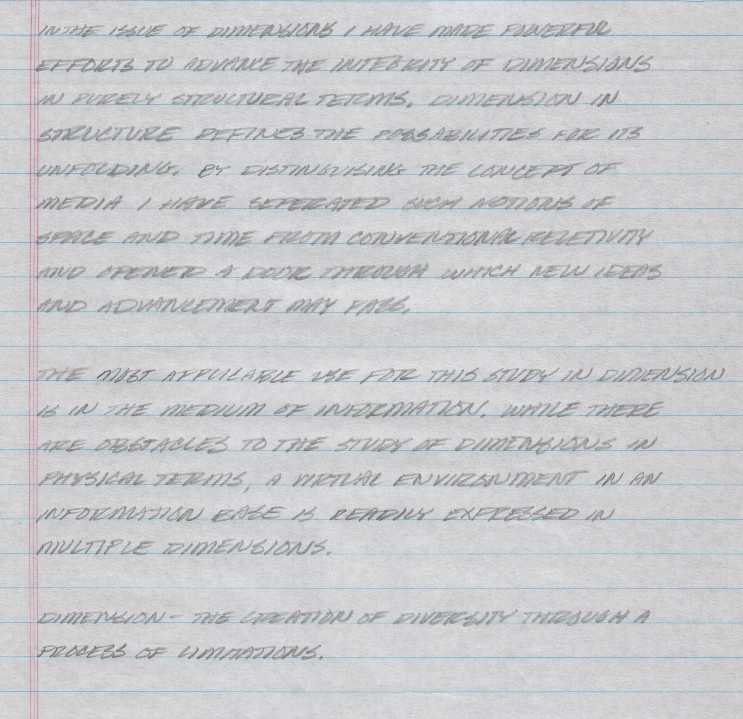 IN THE ISSUE OF DIMENSIONS I HAVE MADE POWERFUL
EFFORTS TO ADVANCE THE INTEGRITY OF DIMENSIONS
IN PURELY STRUCTURAL TERMS. DIMENSION IN
STRUCTURE DEFINES THE POSSABILITIES FOR ITS
UNFOLDING. BY DISTINGUISING THE CONCEPT OF
MEDIA I HAVE SEPERATED SUCH NOTIONS OF
SPACE AND TIME FROM CONVENTIONAL RELETIVITY
AND OPENED A DOOR THROUGH WHICH NEW IDEAS
AND ADVANCEMENT MAY PASS.
THE MOST APPLICABLE USE FOR THIS STUDY IN DIMENSION
IS IN THE MEDIUM OF INFORMATION. WHILE THERE
ARE OBSTACLES TO THE STUDY OF DIMENSIONS IN
PHYSICAL TERMS, A VIRTUAL ENVIRONMENT IN AN
INFORMATION BASE IS READILY EXPRESSED IN
MULTIPLE DIMENSIONS.
DIMENSION - THE CREATION OF DIVERSITY THROUGH A
PROCESS OF LIMITATIONS.